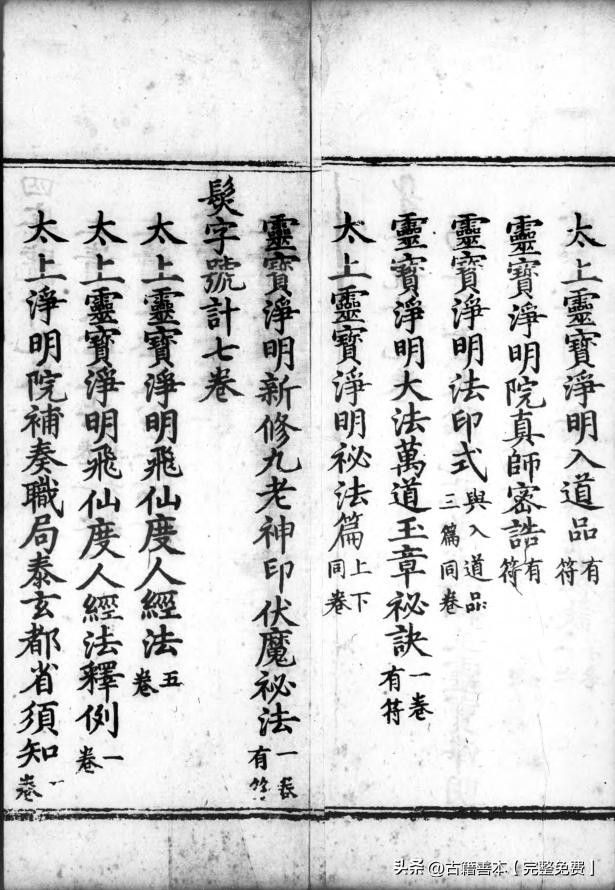 太上靈寶淨明入道品有符
靈寶淨明院真師密誥有符
靈寶淨明法印式與入道品三篇同卷
靈寶淨明大法萬道玉章祕訣一卷有符
太上靈寶淨明祕法篇上下同卷
靈寶淨明新修九老神印伏魔祕法一卷有符
髮字號計七卷
太上靈寶淨明飛仙度人經法五卷
太上靈寶淨明飛仙度人經法釋例一卷
太上淨明院補奏職局泰玄都省須知一卷
头条 @古籍善本【完整免费】